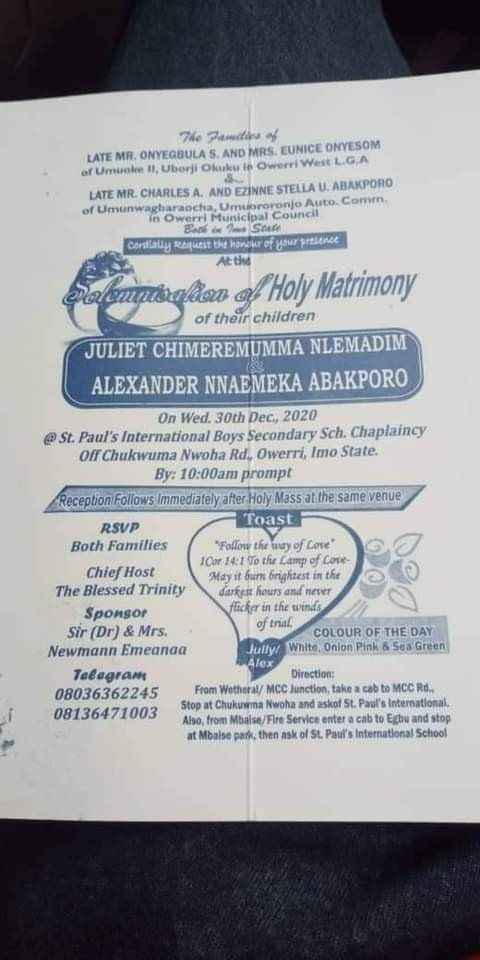 The Families of
LATE MR. ONYEGBULA S. AND MRS. EUNICE ONYESOM
of Umuoke II, Uborji Okuku in Owerri West L.G.A
&
LATE MR. CHARLES A. AND EZINNE STELLA U. ABAKPORO
of Umunwagbaraocha, Umuororonjo Auto. Comm.
in Owerri Municipal Council
Both in Imo State
Cordially Request the honour of your presence
At the
Solemnisation of Holy Matrimony
of their children
JULIET CHIMEREMUMMA NLEMADIM
&
ALEXANDER NNAEMEKA ABAKPORO
On Wed. 30th Dec., 2020
@ St. Paul's International Boys Secondary Sch. Chaplaincy
Off Chukwuma Nwoha Rd., Owerri, Imo State.
By: 10:00am prompt
Reception Follows Immediately after Holy Mass at the same venue
RSVP
Both Families
Chief Host
The Blessed Trinity
Sponsor
Sir (Dr) & Mrs.
Newmann Emeanaa
Telegram
08036362245
08136471003
Toast
"Follow the way of Love"
1Cor 14:1 To the Lamp of Love-
May it burn brightest in the
darkest hours and never
flicker in the winds
of trial.
Jully/
Alex
COLOUR OF THE DAY
White, Onion Pink & Sea Green
Direction:
From Wetheral/ MCC Junction, take a cab to MCC Rd.,
Stop at Chukuwma Nwoha and askof St. Paul's International.
Also, from Mbaise/Fire Service enter a cab to Egbu and stop
at Mbaise park, then ask of St. Paul's International School